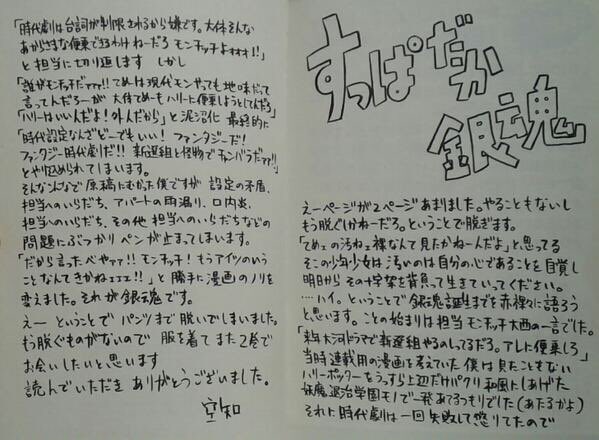 すっぱだか
銀魂
えーページが2ページあまりました。やることもないし
もう脱ぐしかねーだろ。ということで脱ぎます。
「てめェの汚ねェ裸なんて見たかねーんだよ」と思ってる
そこの少年少女は汚いのは自分の心であることを自覚し
明日からその十字架を背負って生きていってください。
‥‥ハイ。ということで銀魂誕生までを赤裸々に語ろう
と思います。ことの始まりは担当モンチッチ大西の一言でした。
「来年大河ドラマで新選組やるのしってるだろ。アレに便乗しろ」
当時連載用の漫画を考えていた僕は見たこともない
ハリーポッターをうっすら上辺だけパクリ和風にしあげた
妖魔退治学園モノで一発あてるつもりでした(あたるかよ)
それに時代劇は一回失敗して懲りてたので
「時代劇は台詞が制限されるから嫌です。大体そんな
あからさまな便乗で3るわけねーだろ モンチッチよォォォ!!」
と担当に切り返します しかし
「誰がモンチッチだァァ!!てめーは現代モンやっても地味だって
言ってんだろーが 大体てめーもハリーに便乗しようとしてんだろ」
「ハリーはいいんだよ!外人だから」と泥沼化 最終的に
「時代設定なんざどーでもいい!ファンタジーだ!
ファンタジー時代劇だ!!新選組と怪物でチャンバラだァァ!!」
とやり込められてしまいます。
そんなんなで原稿にむかった僕ですが 設定の矛盾、
担当へのいらだち、アパートの雨漏り、口内炎、
担当へのいらだち、その他担当へのいらだちなどの
問題にぶつかりペンが止まってしまいます。
「だから言ったべやァァ!!モンチッチ!もうアイツのいう
ことなんてきかねェェェ!!」と勝手に漫画のノリを
変えました。それが銀魂です。
えー ということで パンツまで脱いでしまいました。
もう脱ぐものがないので 服を着てまた2巻で
お会いしたいと思います
読んでいただき ありがとうございました。
空知